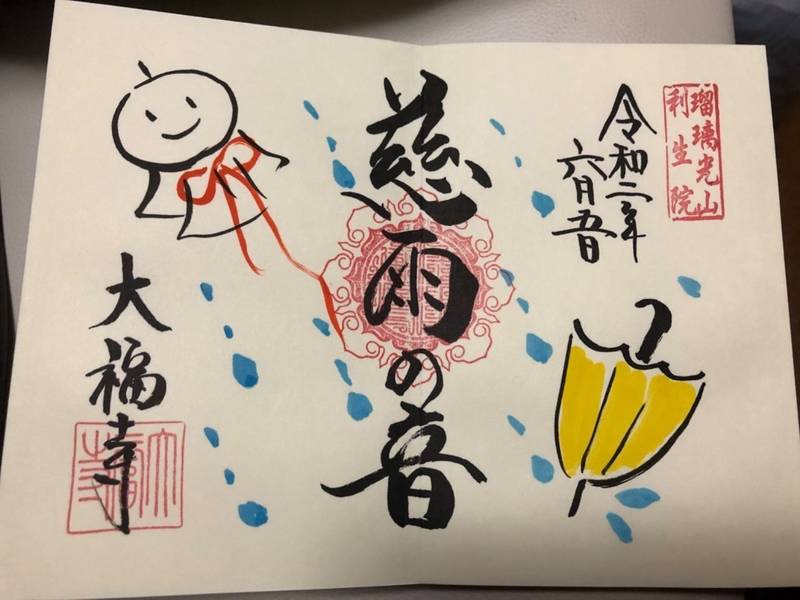 瑠璃光山
利生院
令和二年
六月五日
慈雨の音
大福寺
大福寺